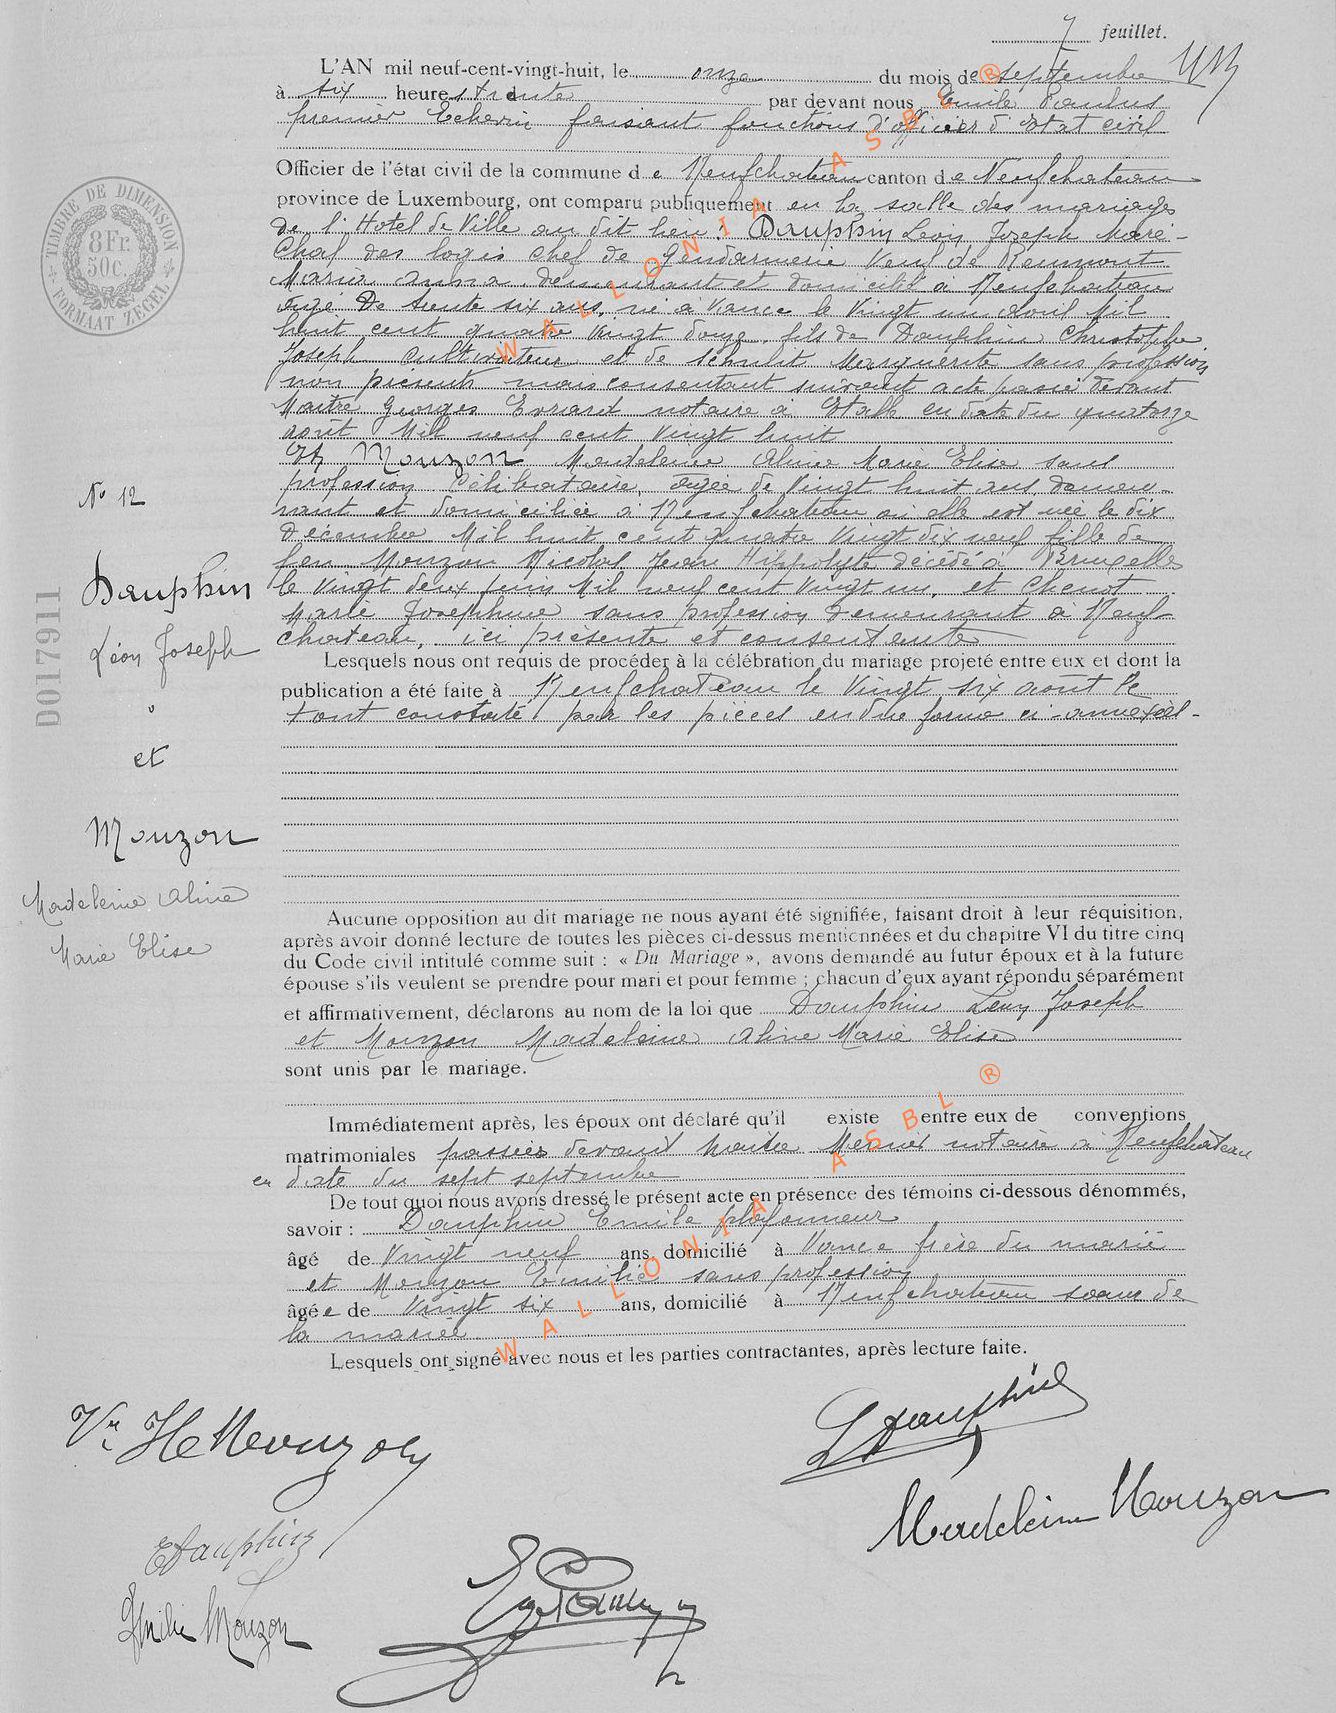 7 feuillet.
L'AN mil neuf-cent-vingt-huit, le onze du mois de septembre
à six heures trente par devant nous Emile Paulus
premier Echevin faisant fonctions d'officier d'Etat civil
Officier de l'état civil de la commune de Neufchateau canton de Neufchateau
province de Luxembourg, ont comparu publiquement en la salle des mariages
de l'Hotel de Ville au dit lieu : Dauphin Léon Joseph Maré-
chal des logis chef de Gendarmerie Veuf de Reumont
Maria Anna demeurant et domicilié à Neufchateau
âgé de trente six ans, né à Vance le vingt un avril Mil
huit cent quatre vingt douze, fils de Dauphin Christophe
Joseph cultivateur et de Schmit Marguerite sans profession
non présents mais consentant suivant acte passé devant
Maitre Georges Evrard notaire à Etalle en date du quatorze
août Mil neuf cent vingt huit
Et Mouzon Madeleine Aline Marie Elise sans
profession Célibataire, âgée de vingt huit ans demeu-
rant et domiciliée à Neufchateau où elle est née le dix
Décembre Mil huit cent quatre vingt dix neuf fille de
feu Mouzon Nicolas Jean Hippolyte décédé à Bruxelles
le vingt deux juin Mil neuf cent vingt un, et Chenot
Marie Josephine sans profession demeurant à Neuf-
chateau, ici présente et consentante
Lesquels nous ont requis de procéder à la célébration du mariage projeté entre eux et dont la
publication a été faite à Neufchateau le vingt six août le
tout constaté par les pièces en due forme ci-annexées -
N° 12
Dauphin
Léon Joseph
et
Mouzon
Madeleine Aline
Marie Elise
TIMBRE DE DIMENSION
8 Fr.
50 c.
FORMAAT ZEGEL
D017911
Aucune opposition au dit mariage ne nous ayant été signifiée, faisant droit à leur réquisition,
après avoir donné lecture de toutes les pièces ci-dessus mentionnées et du chapitre VI du titre cinq
du Code civil intitulé comme suit : « Du Mariage », avons demandé au futur époux et à la future
épouse s'ils veulent se prendre pour mari et pour femme ; chacun d'eux ayant répondu séparément
et affirmativement, déclarons au nom de la loi que Dauphin Léon Joseph
et Mouzon Madeleine Aline Marie Elise
sont unis par le mariage.
Immédiatement après, les époux ont déclaré qu'il existe entre eux de conventions
matrimoniales passées devant maitre notaire à Neufchateau
en date du sept septembre
De tout quoi nous avons dressé le présent acte en présence des témoins ci-dessous dénommés,
savoir : Dauphin Emile plafonneur
âgé de vingt neuf ans, domicilié à Vance frère du marié
et Mouzon Emilie sans profession
âgée de vingt six ans, domicilié à Neufchateau soeur de
la mariée
Lesquels ont signé avec nous et les parties contractantes, après lecture faite.
Ve H Mouzon
L Dauphin
Madeleine Mouzon
E Dauphin
Emilie Mouzon
WALLONIA ASBL ®
WALLONIA ASBL ®